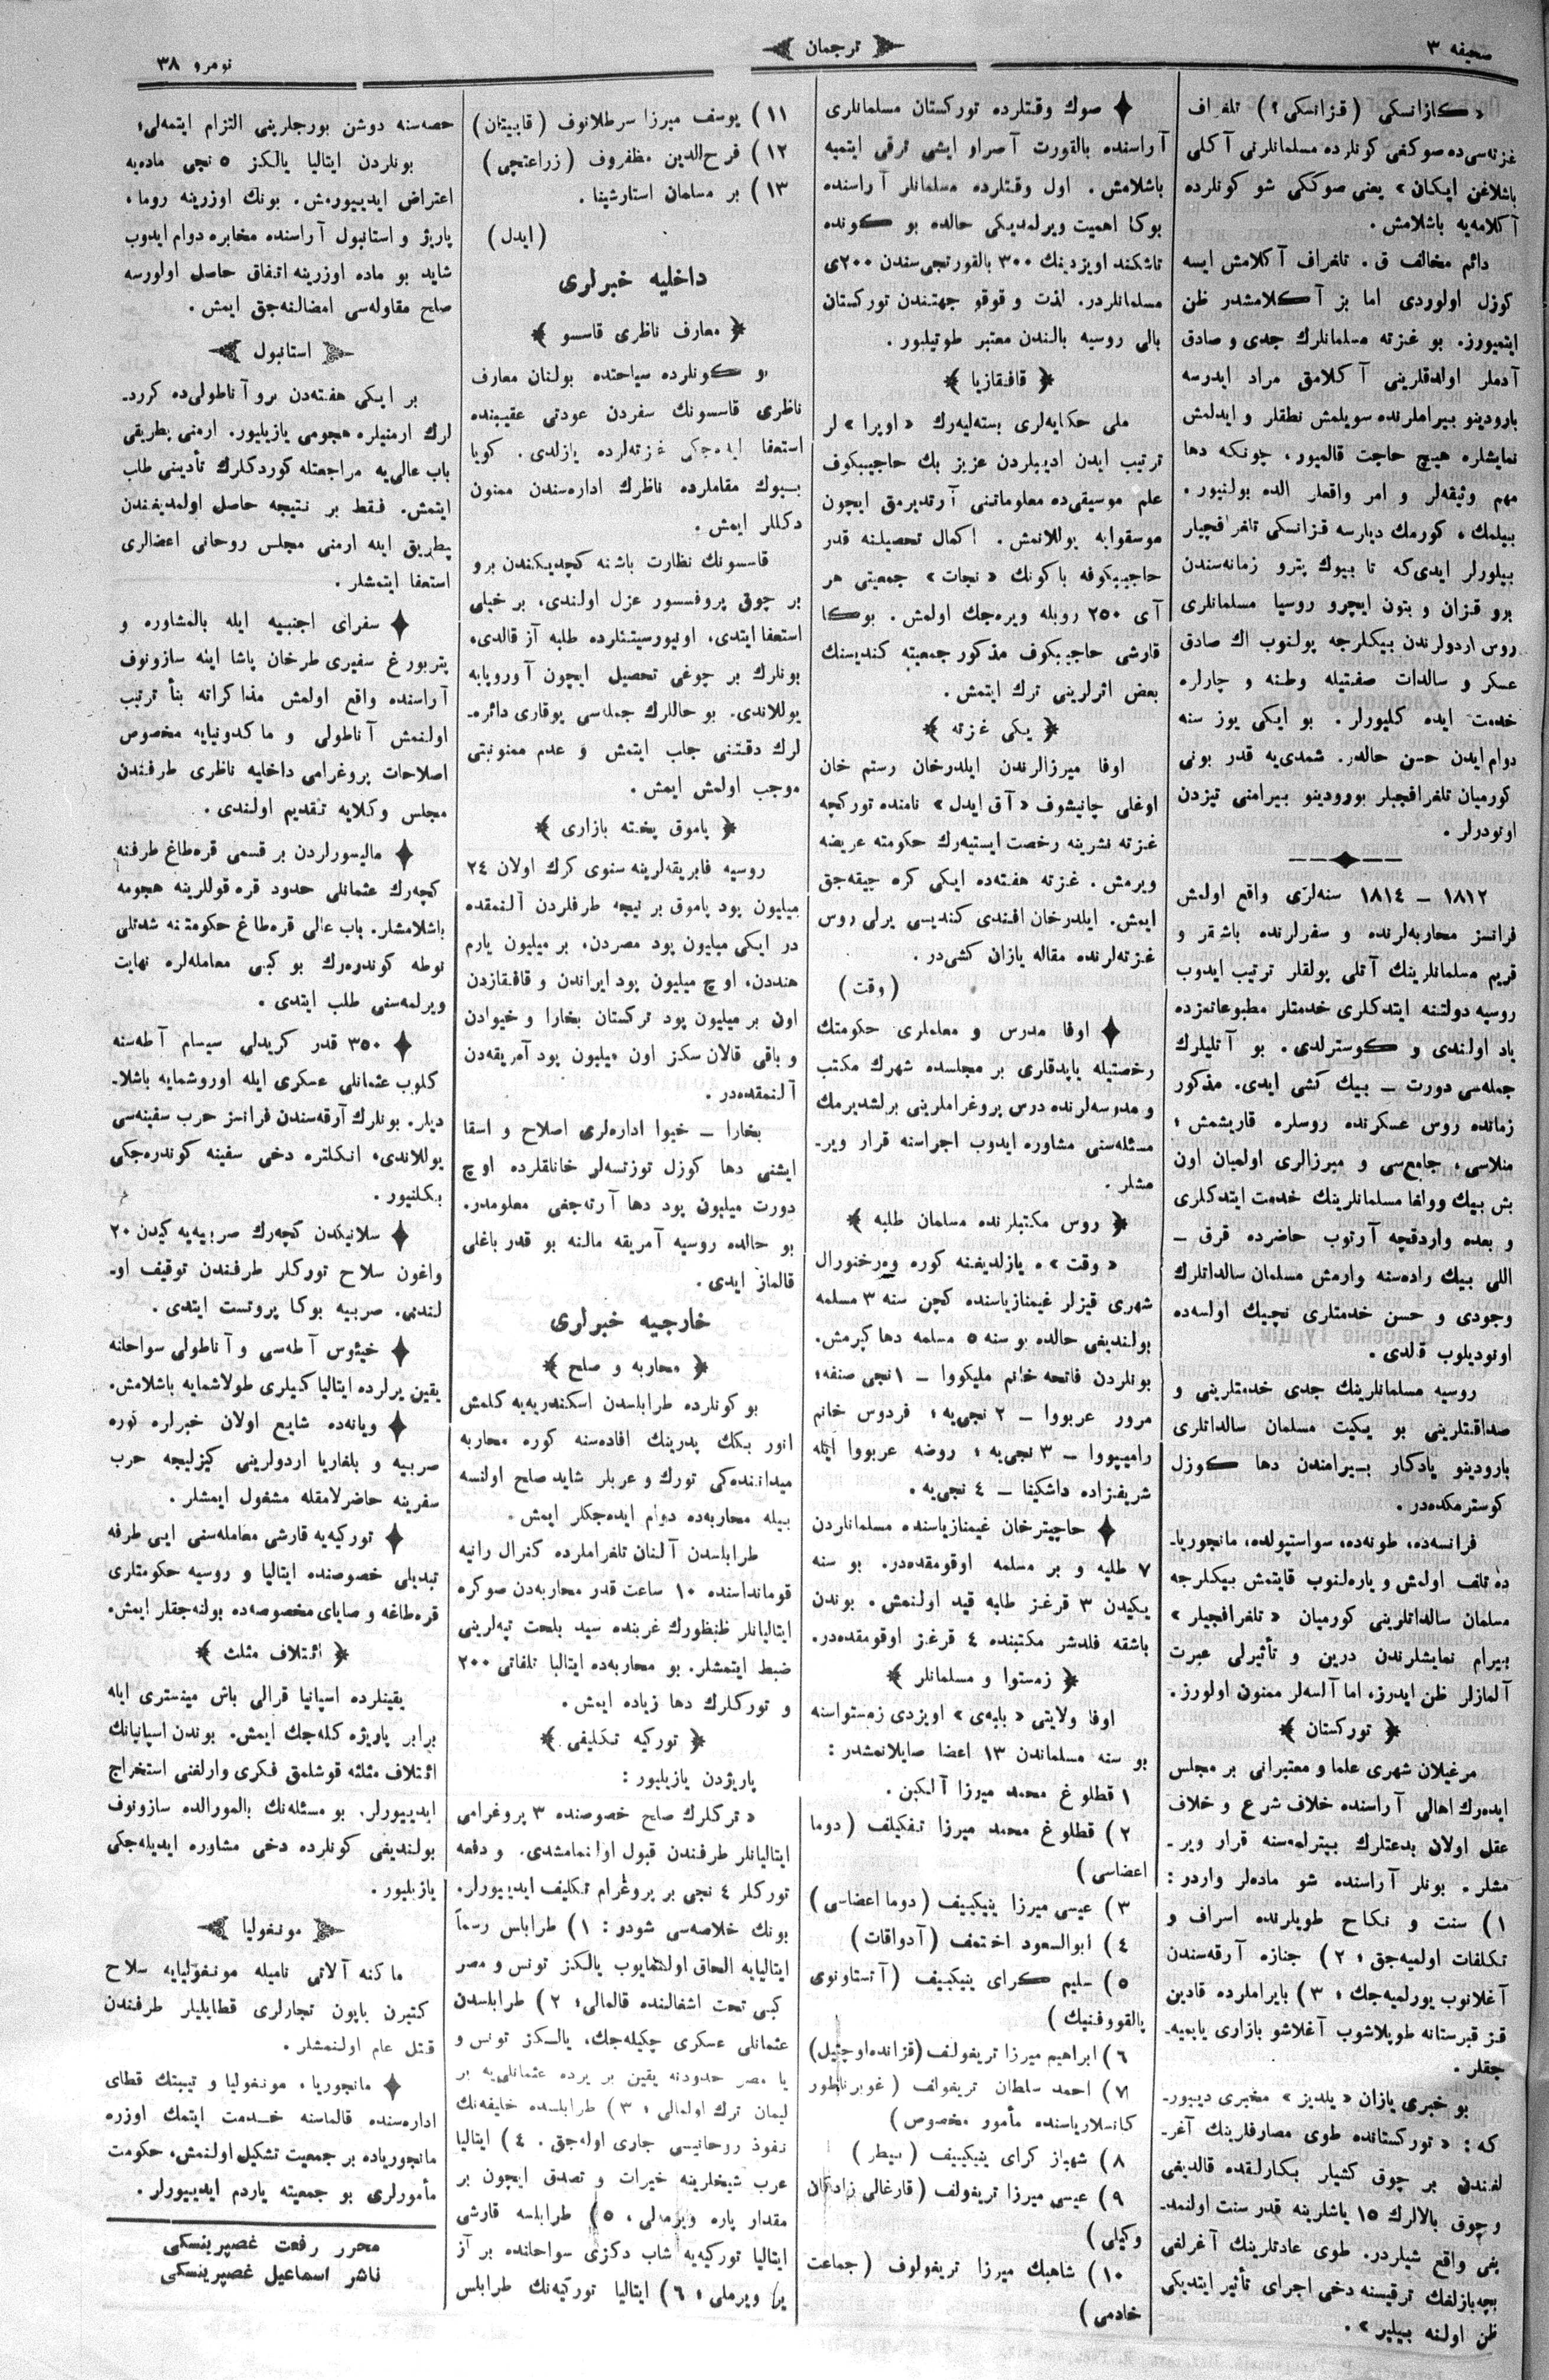 صحیفه ٣
ترجمان
نومرو ٣٨
«كازانسكی (قزانسكی؟) تلغراف
غزته‌سی‌ده صوكغی كونلرده مسلمانلرنی آكلی
باشلاغن ایكان» یعنی صوككی شو كونلرده
آكلامه‌یه باشلامش.
دائم مخالف ق. تلغراف آكلامش ایسه
كوزل اولوردی اما بز آكلامشدر ظن
ایتمیورز. بو غزته مسلمانلرك جدی و صادق
آدملر اولدقلرینی آكلامق مراد ایدرسه
بارودینو بیراملرنده سویلمش نطقلر و ایدلمش
نمایشلره هیچ حاجت قالمیور، چونكه دها
مهم وثیقه‌لر و امر واقعلر الده بولنیور.
بیلمك، كورمك دیارسه قزانسكی تلغرافچیلر
بیلورلر ایدی‌كه تا بیوك پترو زمانه‌سندن
برو قزان و بتون ایچرو روسیا مسلمانلری
روس اردولرندن بیكلرجه پولنوب اك صادق
عسكر و سالدات صفتیله وطنه و چارلره
خدمت ایده كلیورلر. بو ایكی یوز سنه
دوام ایدن حسن حالدر. شمدی‌یه قدر بونی
كورمیان تلغرافچیلر بورودینو بیرامنی تیزدن
اونودرلر.
١٨١٢ – ١٨١٤ سنه‌لری واقع اولمش
فرانسز محاربه‌لرنده و سفرلرنده باشقر و
قریم مسلمانلرینك آتلی پولقلر ترتیب ایدوب
روسیه دولتنه ایتدكلری خدمتلر مطبوعاتمزده
یاد اولندی و كوسترلدی. بو آتلیلرك
جمله‌سی دورت – بیك كشی ایدی. مذكور
زمانده روس عسكرنده روسلره قاریشمش؛
منلاسی، جامع‌سی و میرزالری اولمیان اون
بش بیك وولغا مسلمانلرینك خدمت ایتدكلری
و بعده واردقچه آرتوب حاضرده قرق –
اللی بیك راده‌سنه وارمش مسلمان سالداتلرك
وجودی و حسن خدمتلری نچیك اولسه‌ده
اونودیلوب قالدی.
روسیه مسلمانلرینك جدی خدمتلرینی و
صداقتلرینی بو یكیت مسلمان سالداتلری
بارودینو یادكار بیرامندن دها كوزل
كوسترمكده‌در.
فرانسه‌ده، طونه‌ده، سواستپولده، مانجوریا-
ده تلف اولمش و یاره‌لنوب قایتمش بیكلرجه
مسلمان سالداتلرینی كورمیان «تلغرافچیلر»
بیرام نمایشلرندن درین و تأثیرلی عبرت
آلمازلر ظن ایدرز، اما آلسه‌لر ممنون اولورز.
توركستان
مرغیلان شهری علما و معتبرانی بر مجلس
ایده‌رك اهالی آراسنده خلاف شرع و خلاف
عقل اولان بدعتلرك بیترلمه‌سنه قرار ویر-
مشلر. بونلر آراسنده شو ماده‌لر واردر:
١) سنت و نكاح طویلرنده اسراف و
تكلفات اولمیه‌جق؛ ٢) جنازه آرقه‌سندن
آغلانوب یورلمیه‌جك؛ ٣) بایراملرده قادین
قز قبرستانه طوپلاشوب آغلاشو بازاری یاپمیه-
جقلر.
بو خبری یازان «یلدیز» مخبری دییور-
كه: «توركستانده طوی مصارفلرینك آغر-
لغندن بر چوق كشیلر بكارلقده قالدیغی
و چوق بالالرك ١٥ یاشلرینه قدر سنت اولنمد-
یغی واقع شیلردر. طوی عادتلرینك آغرلغی
بچه‌بازلغك ترقیسنه دخی اجرای تأثیر ایتدیكی
ظن اولنه بیلیر».
صوك وقتلرده توركستان مسلمانلری
آراسنده بالقورت آصراو ایشی ترقی ایتمیه
باشلامش. اول وقتلرده مسلمانلر آراسنده
بوكا اهمیت ویرلمدیكی حالده بو كونده
تاشكند اویزدینك ٣٠٠ بالقورتجی‌سندن ٢٠٠ی
مسلمانلردر. لذت و قوقو جهتندن توركستان
بالی روسیه بالندن معتبر طوتیلیور.
قافقازیا
ملی حكایه‌لری بسته‌لیه‌رك «اوپرا» لر
ترتیب ایدن ادیبلردن عزیز بك حاجیبكوف
علم موسیقی‌ده معلوماتنی آرتدیرمق ایچون
موسقوایه یوللانمش. اكمال تحصیلنه قدر
حاجیبكوفه باكونك «نجات» جمعیتی هر
آی ٢٥٠ روبله ویره‌جك اولمش. بوكا
قارشی حاجیبكوف مذكور جمعیته كندیسنك
بعض اثرلرینی ترك ایتمش.
یكی غزته
اوفا میرزالرندن ایلدرخان رستم خان
اوغلی چانیشوف «آق ایدل» نامنده توركچه
غزته نشرینه رخصت ایستیه‌رك حكومته عریضه
ویرمش. غزته هفته‌ده ایكی كره چیقه‌جق
ایمش. ایلدرخان افندی كندیسی یرلی روس
غزته‌لرنده مقاله یازان كشی‌در.
(وقت)
اوفا مدرس و معلملری حكومتك
رخصتیله یاپدقلری بر مجلسده شهرك مكتب
و مدرسه‌لرنده درس پروغراملرینی برلشدیرمك
مسئله‌سنی مشاوره ایدوب اجراسنه قرار ویر-
مشلر.
روس مكتبلرنده مسلمان طلبه
«وقت»ه یازلدیغنه كوره وه‌رخنورال
شهری قیزلر غیمنازیاسنده كچن سنه ٣ مسلمه
بولندیغی حالده بو سنه ٥ مسلمه دها كیرمش.
بونلردن فاتحه خانم ملیكووا – ١نجی صنفه؛
مرور عربووا – ٢ نجی‌یه؛ فردوس خانم
رامییووا – ٣ نجی‌یه؛ روضه عربووا ایله
شریفزاده داشكینا – ٤ نجی‌یه.
حاجیترخان غیمنازیاسنده مسلمانلردن
٧ طلبه و بر مسلمه اوقومقده‌در. بو سنه
یكیدن ٣ قرغز طلبه قید اولنمش. بوندن
باشقه فلدشر مكتبنده ٤ قرغز اوقومقده‌در.
زمستوا و مسلمانلر
اوفا ولایتی «بلبه‌ی» اویزدی زمستواسنه
بو سنه مسلماندن ١٣ اعضا صایلانمشدر:
١ قطلوغ محمد میرزا آلكین.
٢) قطلوغ محمد میرزا تفكیلف (دوما
اعضاسی)
٣) عیسی میرزا ینیكییف (دوما اعضاسی)
٤) ابوالسعود اختمف (آدواقات)
٥) سلیم كرای ینیكییف (آتستاونوی
پالقووفنیك)
٦) ابراهیم میرزا تریغولف (قزانده اوچتیل)
٧) احمد سلطان تریغولف (غوبرناطور
كانسلاریاسنده مأمور مخصوص)
٨) شهباز كرای ینیكییف (بیطر)
٩) عیسی میرزا تریغولف (قارغالی زادكان
وكیلی)
١٠) شاهبك میرزا تریغولوف (جماعت
خادمی)
١١) یوسف میرزا سرطلانوف (قاپیتان)
١٢) فرح‌الدین مظفروف (زراعتچی)
١٣) بر مسلمان استارشینا.
(ایدل)
داخلیه خبرلری
معارف ناظری قاسسو
بو كونلرده سیاحتده بولنان معارف
ناظری قاسسونك سفردن عودتی عقیبنده
استعفا ایده‌جكی غزته‌لرده یازلدی. كویا
بیوك مقاملرده ناظرك اداره‌سندن ممنون
دكللر ایمش.
قاسسونك نظارت باشنه كچدیكندن برو
بر چوق پروفسسور عزل اولندی، بر خیلی
استعفا ایتدی، اونیورسیتتلرده طلبه آز قالدی،
بونلرك بر چوغی تحصیل ایچون آوروپایه
یوللاندی. بو حاللرك جمله‌سی یوقاری دائره-
لرك دقتنی جلب ایتمش و عدم ممنونیتی
موجب اولمش ایمش.
پاموق پخته بازاری
روسیه فابریقه‌لرینه سنوی كرك اولان ٢٤
میلیون پود پاموق بر نیچه طرفلردن آلنمقده
در ایكی میلیون پود مصردن، بر میلیون یارم
هنددن، اوچ میلیون پود ایراندن و قافقازدن
اون بر میلیون پود تركستان بخارا و خیوادن
و باقی قالان سكز اون میلیون پود آمریقه‌دن
آلنمقده‌در.
بخارا – خیوا اداره‌لری اصلاح و اسقا
ایشنی دها كوزل توزتسه‌لر خانلقلرده اوچ
دورت میلیون پود دها آرته‌جغی معلومدر.
بو حالده روسیه آمریقه مالنه بو قدر باغلی
قالماز ایدی.
خارجیه خبرلری
محاربه و صلح
بو كونلرده طرابلسدن اسكندریه‌یه كلمش
انور بكك پدرینك افاده‌سنه كوره محاربه
میداننده‌كی تورك و عربلر شاید صلح اولنسه
بیله محاربه‌ده دوام ایده‌جكلر ایمش.
طرابلسدن آلنان تلغراملرده كنرال رانیه
قومانداسنده ١٠ ساعت قدر محاربه‌دن صوكره
ایتالیانلر ظنظورك غربنده سید بلحت تپه‌لرینی
ضبط ایتمشلر. بو محاربه‌ده ایتالیا تلفاتی ٢٠٠
و توركلرك دها زیاده ایمش.
توركیه تكلیفی
پاریژدن یازیلیور:
«تركلرك صلح خصوصنده ٣ پروغرامی
ایتالیانلر طرفندن قبول اولنمامشدی. و دفعه
توركلر ٤ نجی بر پروغرام تكلیف ایدییورلر.
بونك خلاصه‌سی شودر: ١) طرابلس رسماً
ایتالیایه الحاق اولنمایوب یالكز تونس و مصر
كبی تحت اشغالنده قالمالی؛ ٢) طرابلسدن
عثمانلی عسكری چكیله‌جك، یالكز تونس و
یا مصر حدودنه یقین بر یرده عثمانلی‌یه بر
لیمان ترك اولمالی؛ ٣) طرابلسده خلیفه‌نك
نفوذ روحانیسی جاری اوله‌جق. ٤) ایتالیا
عرب شیخلرینه خیرات و تصدق ایچون بر
مقدار پاره ویرملی، ٥) طرابلسه قارشی
ایتالیا توركیه‌یه شاب دكزی سواحانده بر آز
یر ویرملی؛ ٦) ایتالیا توركیه‌نك طرابلس
حصه‌سنه دوشن بورجلرینی التزام ایتمه‌لی؛
بونلردن ایتالیا یالكز ٥ نجی ماده‌یه
اعتراض ایدییورمش. بونك اوزرینه روما،
پاریژ و استانبول آراسنده مخابره دوام ایدوب
شاید بو ماده اوزرینه اتفاق حاصل اولورسه
صلح مقاوله‌سی امضالنه‌جق ایمش.
استانبول
بر ایكی هفته‌دن برو آناطولی‌ده كورد-
لرك ارمنیلره هجومی یازیلیور. ارمنی بطریقی
باب عالی‌یه مراجعتله كوردكلرك تأدیبنی طلب
ایتمش. فقط بر نتیجه حاصل اولمدیغندن
پطریق ایله ارمنی مجلس روحانی اعضالری
استعفا ایتمشلر.
سفرای اجنبیه ایله بالمشاوره و
پتربورغ سفیری طرخان پاشا اینه سازونوف
آراسنده واقع اولمش مذاكراته بنأ ترتیب
اولنمش آناطولی و ماكدونیایه مخصوص
اصلاحات پروغرامی داخلیه ناظری طرفندن
مجلس وكلایه تقدیم اولندی.
مالیسورلردن بر قسمی قره‌طاغ طرفنه
كچه‌رك عثمانلی حدود قره قوللرینه هجومه
باشلامشلر. باب عالی قره‌طاغ حكومتنه شدتلی
نوطه كوندره‌رك بو كبی معامله‌لره نهایت
ویرلمه‌سنی طلب ایتدی.
٣٥٠ قدر كریدلی سیسام آطه‌سنه
كلوب عثمانلی عسكری ایله اوروشمایه باشلا-
دیلر. بونلرك آرقه‌سندن فرانسز حرب سفینه‌سی
یوللاندی، انكلتره دخی سفینه كوندره‌جكی
بكلنیور.
سلانیكدن كچه‌رك صربیه‌یه كیدن ٢٠
واغون سلاح توركلر طرفندن توقیف او-
لندی. صربیه بوكا پروتست ایتدی.
خیئوس آطه‌سی و آناطولی سواحانه
یقین یرلرده ایتالیا كمیلری طولاشمایه باشلامش.
ویانه‌ده شایع اولان خبرلره كوره
صربیه و بلغاریا اردولرینی كیزلیجه حرب
سفرینه حاضرلامقله مشغول ایمشلر.
توركیه‌یه قارشی معامله‌سنی ایی طرفه
تبدیلی خصوصنده ایتالیا و روسیه حكومتلری
قره‌طاغه وصایای مخصوصه‌ده بولنه‌جقلر ایمش.
ائتلاف مثلث
یقینلرده اسپانیا قرالی باش مینستری ایله
برابر پاریژه كله‌جك ایمش. بوندن اسپانیانك
ائتلاف مثلثه قوشلمق فكری وارلغنی استخراج
ایدییورلر. بو مسئله‌نك بالمورالده سازونوف
بولندیغی كونلرده دخی مشاوره ایدیله‌جكی
یازیلیور.
مونغولیا
ماكنه آلاتی نامیله مونغولیایه سلاح
كتیرن یاپون تجارلری قطایلیلر طرفندن
قتل عام اولنمشلر.
مانجوریا، مونغولیا و تیبتك قطای
اداره‌سنده قالماسنه خدمت ایتمك اوزره
مانجوریاده بر جمعیت تشكیل اولنمش، حكومت
مأمورلری بو جمعیته یاردم ایدییورلر.
محرر رفعت غصپرینسكی
ناشر اسماعیل غصپرینسكی